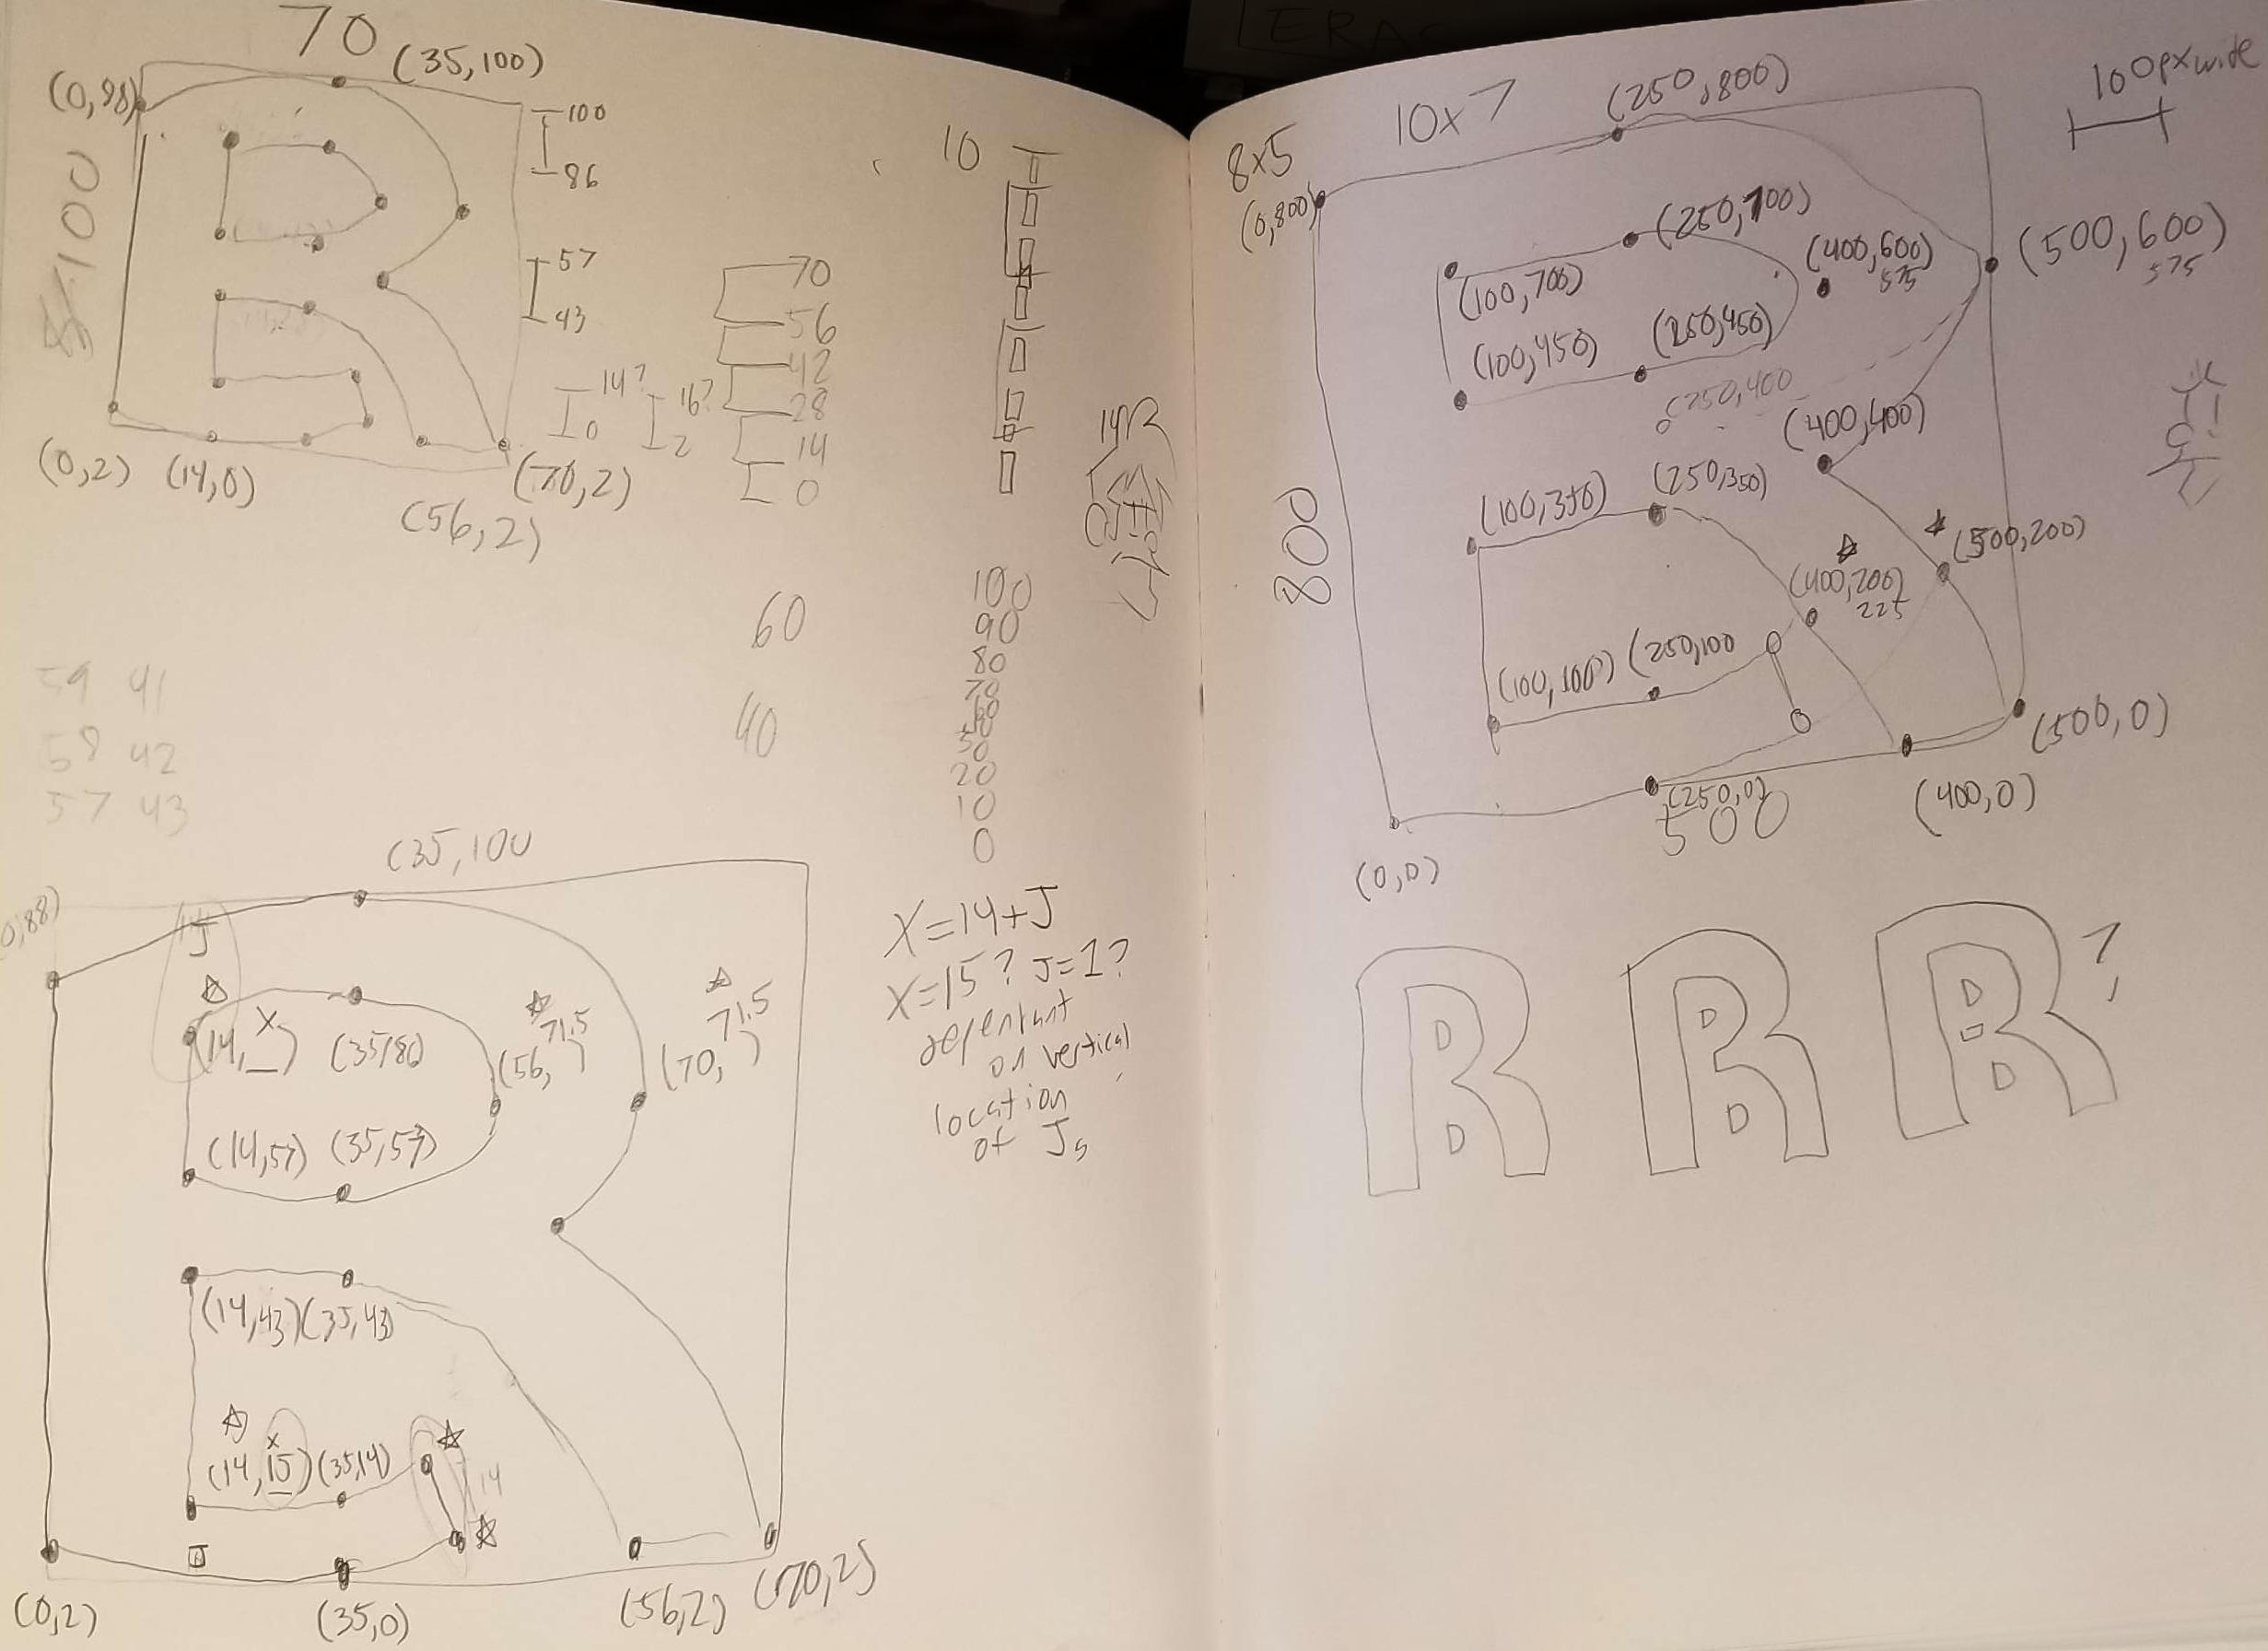 70
(35,100)
(0,98)
100
100
86
57
43
14?
0
16?
2
70
56
42
28
14
0
(0,2)
(14,0)
(56,2)
(70,2)
10
60
40
59 41
58 42
57 43
100
90
80
70
60
50
30
20
10
0
(35,100
0,88)
J
(14,_)
X
(35,86)
(56, )
71.5
(70, )
71.5
(14,57)
(35,57)
(14,43)
(35,43)
(14,15)
X
(35,14)
14
J
(0,2)
(35,0)
(56,2)
(70,2)
X=14+J
X=15? J=1?
dependant
on vertical
location
of Js
ERAS
8x5
10x7
(250,800)
100px wide
(0,800)
(250,700)
(400,600)
575
(500,600)
575
(100,700)
(250,450)
(100,450)
(250,400
(400,400)
(100,350)
(250,350)
(500,200)
(400,200)
225
800
(100,100)
(250,100
(500,0)
(250,0)
500
(400,0)
(0,0)
R R R ?